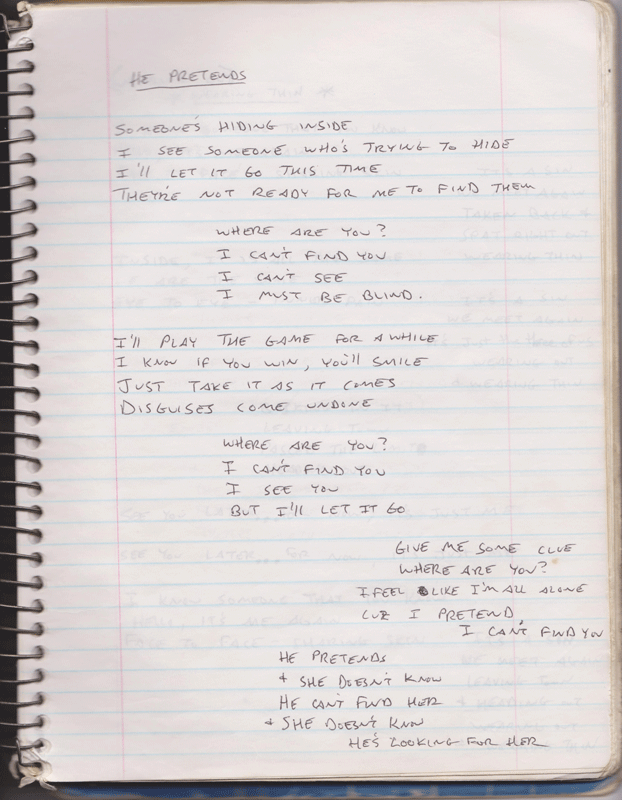 HE PRETENDS
SOMEONE'S HIDING INSIDE
I SEE SOMEONE WHO'S TRYING TO HIDE
I'LL LET IT GO THIS TIME
THEY'RE NOT READY FOR ME TO FIND THEM
WHERE ARE YOU?
I CAN'T FIND YOU
I CAN'T SEE
I MUST BE BLIND.
I'LL PLAY THE GAME FOR A WHILE
I KNOW IF YOU WIN, YOU'LL SMILE
JUST TAKE IT AS IT COMES
DISGUISES COME UNDONE
WHERE ARE YOU?
I CAN'T FIND YOU
I SEE YOU
BUT I'LL LET IT GO
GIVE ME SOME CLUE
WHERE ARE YOU?
I FEEL LIKE I'M ALL ALONE
CUZ I PRETEND,
I CAN'T FIND YOU
HE PRETENDS
+ SHE DOESN'T KNOW
HE CAN'T FIND HER
+ SHE DOESN'T KNOW
HE'S LOOKING FOR HER